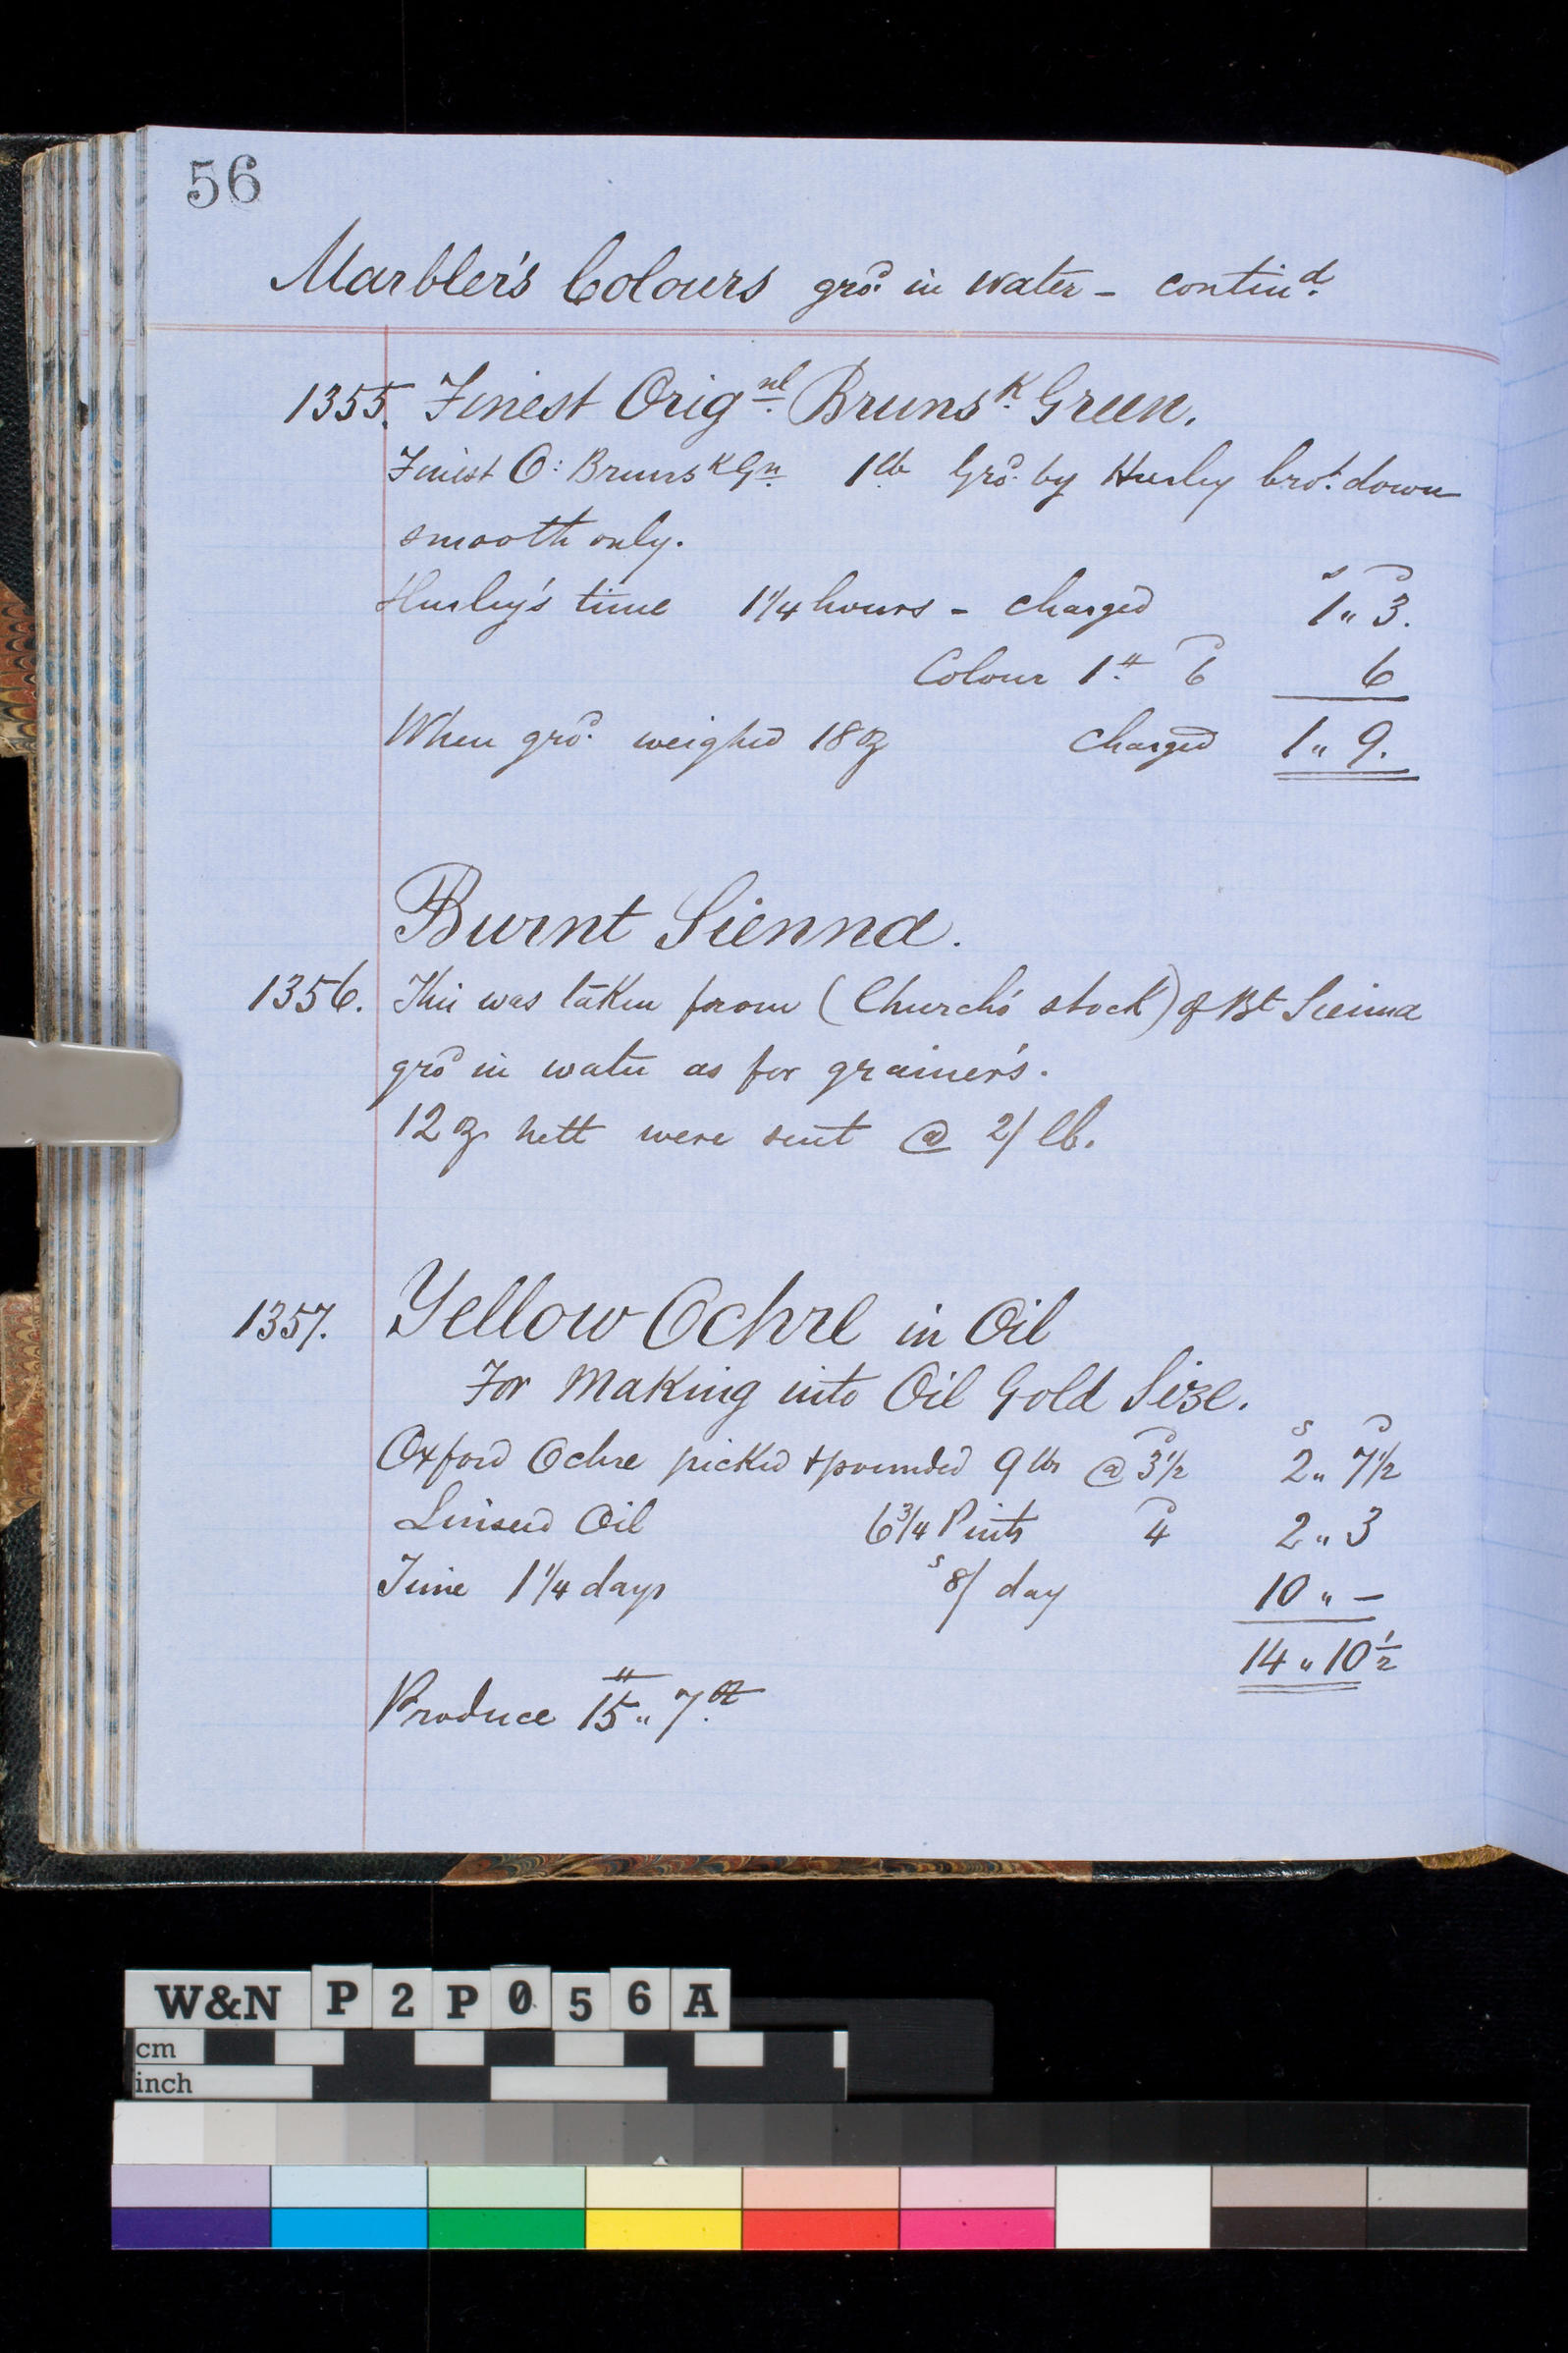 56
Marbler's Colours gro^d. in water - contin^d.
1355. Finest Orig^nl. Bruns^k. Green.
Finest O: Bruns^k Gn. 1 lb Gro^d. by Hurley bro^t. down
smooth only.
s d
Hurley's time 1 1/4 hours - charged 1 " 3.
Colour 1 # 6^d 6
When gro^d. weighed 18 oz charged 1 " 9.
Burnt Sienna.
1356. This was taken from (Church's stock) of Bt Sienna
gro^d in water as for grainer's.
12 oz nett were sent @ 2/ lb.
1357. Yellow Ochre in Oil
For Making into Oil Gold Size.
s d
Oxford Ochre picked & pounded 9 lbs @ 3 1/2^d 2 " 7 1/2
Linseed Oil 6 3/4 Pints 4^d 2 " 3
Time 1 1/4 days ^s 8/ day 10 " -
14 " 10 1/2
Produce 15 # " 7 oz
W&N P2P056A
cm
inch